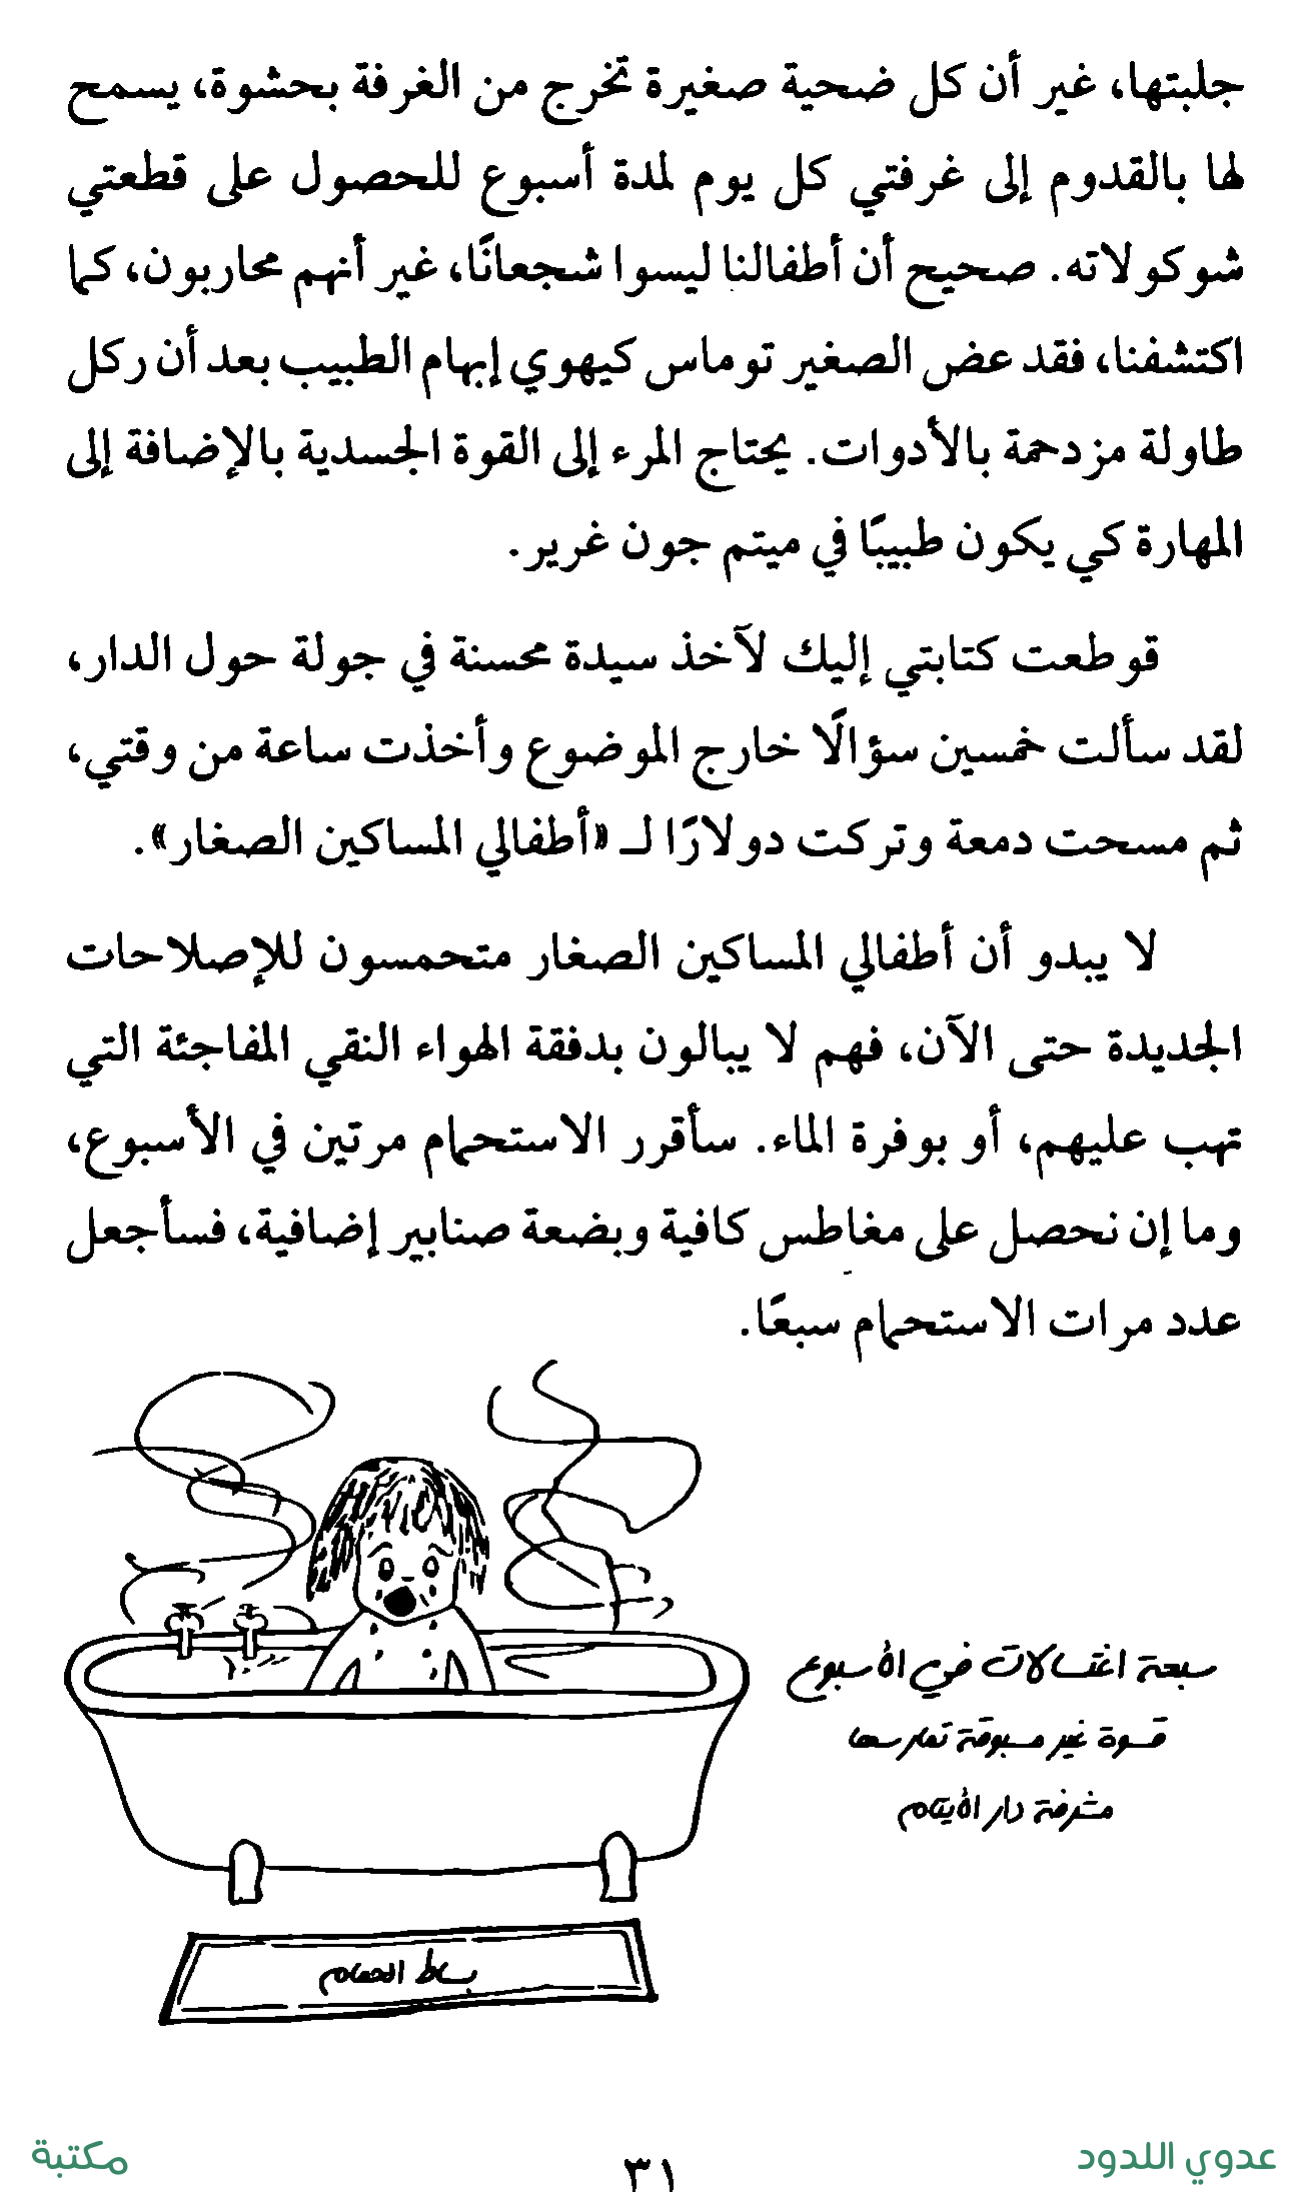 جلبتها، غير أن كل ضحية صغيرة تخرج من الغرفة بحشوة، يسمح
لها بالقدوم إلى غرفتي كل يوم لمدة أسبوع للحصول على قطعتي
شوكولاته. صحيح أن أطفالنا ليسوا شجعانًا، غير أنهم محاربون، كما
اكتشفنا، فقد عض الصغير توماس كيهوي إبهام الطبيب بعد أن ركل
طاولة مزدحمة بالأدوات. يحتاج المرء إلى القوة الجسدية بالإضافة إلى
المهارة كي يكون طبيبًا في ميتم جون غرير.
قوطعت كتابتي إليك لآخذ سيدة محسنة في جولة حول الدار،
لقد سألت خمسين سؤالًا خارج الموضوع وأخذت ساعة من وقتي،
ثم مسحت دمعة وتركت دولارًا لـ «أطفالي المساكين الصغار».
لا يبدو أن أطفالي المساكين الصغار متحمسون للإصلاحات
الجديدة حتى الآن، فهم لا يبالون بدفقة الهواء النقي المفاجئة التي
تهب عليهم، أو بوفرة الماء. سأقرر الاستحمام مرتين في الأسبوع،
وما إن نحصل على مغاطس كافية وبضعة صنابير إضافية، فسأجعل
عدد مرات الاستحمام سبعًا.
سبعة اغتسالات في الأسبوع
قسوة غير مسبوقة تمارسها
مشرفة دار الأيتام
بساط الحمام
عدوي اللدود
٣١
مكتبة